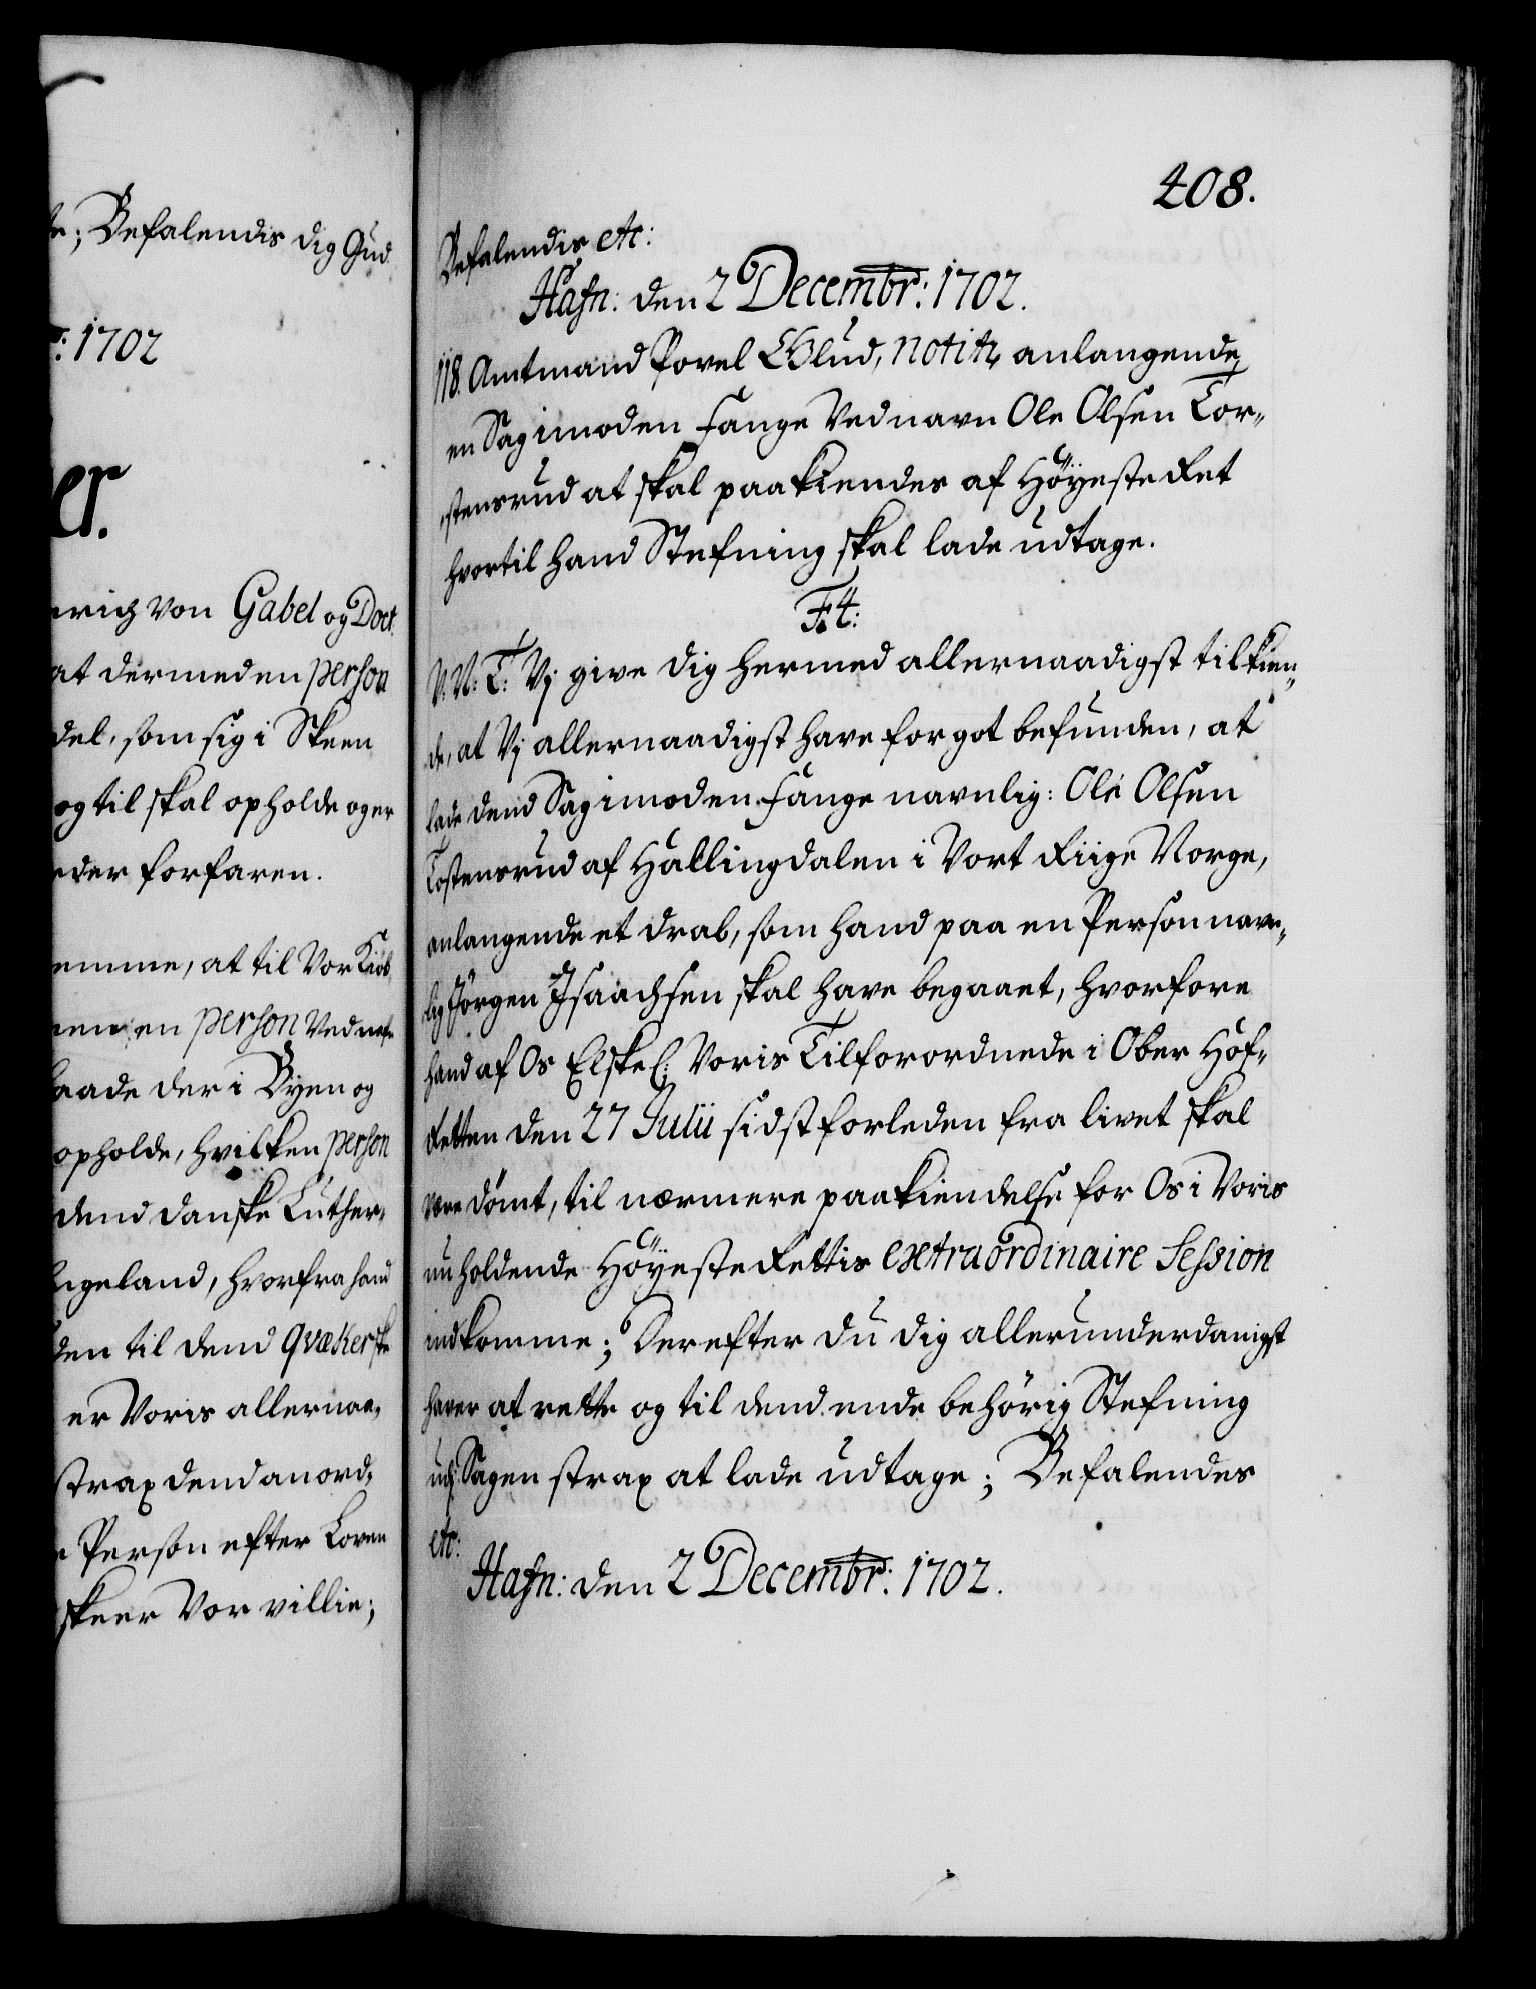 ; Befalendis dig Gud
: 1702
er.
von Gabel og Doct.
at dermed en person
del, som sig i Skeen
og til skal opholde og er
eder forfaren.
emme, at til Vor Kiøb
en person Ved nafn
baade der i Byen og
opholde, hvilken person
dend danske Luther-
Engeland, hvorfra hand
den til dend Qvækerske
er Voris allernaa-
strax dend anord-
Person efter Loven
skeer Vor villie;
408.
Befalendis etc:
Hafn: den 2 Decembr: 1702.
118. Amtmand Povel Glud, notitz anlangende
en Sagimoden Fange Ved navn Ole Olsen Tor-
stensrud at skal paakiendes af Höyeste Ret
hvortil hand Stefning skal lade udtage.
F. 4:
V. V: T: Vj give dig hermed allernaadigst tilkien-
de, at Vj allernaadigst have for got befunden, at
lade dend Sagimoden Fange navnlig: Ole Olsen
Tostensrud af Hallingdalen i Vort Riige Norge,
anlangende et drab, som hand paa en Person navn-
lig Jörgen Isaachsen skal have begaaet, hvorfore
hand af Os Elskel: Voris Tilforordnede i Ober Hof-
Retten den 27 Julii sidstforleden fra livet skal
være dömt, til nærmere paakiendelse for Os i Voris
nu holdende Höyeste Rettis extraordinaire Session
indkomme; Derefter du dig allerunderdanigst
haver at rette og til dend ende behörig Stefning
udj Sagen strax at lade udtage; Befalendes
etc:
Hafn: den 2 Decembr: 1702.